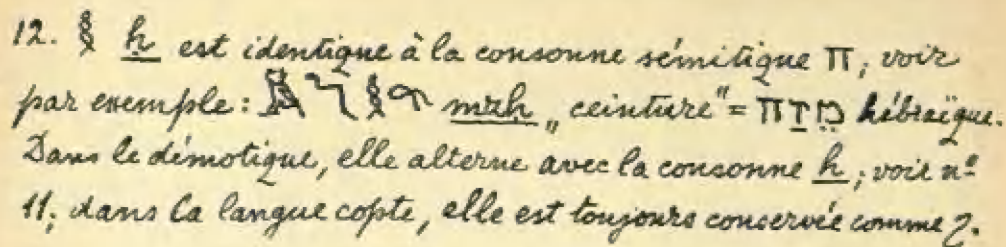 12. 𓎛 ḥ est identique à la consonne sémitique ח; voir
par exemple: 𓎛 mzḥ „ceinture" = מֵזַח hébraïque.
Dans le démotique, elle alterne avec la consonne h; voir nº
11; dans la langue copte, elle est toujours conservée comme ϩ.